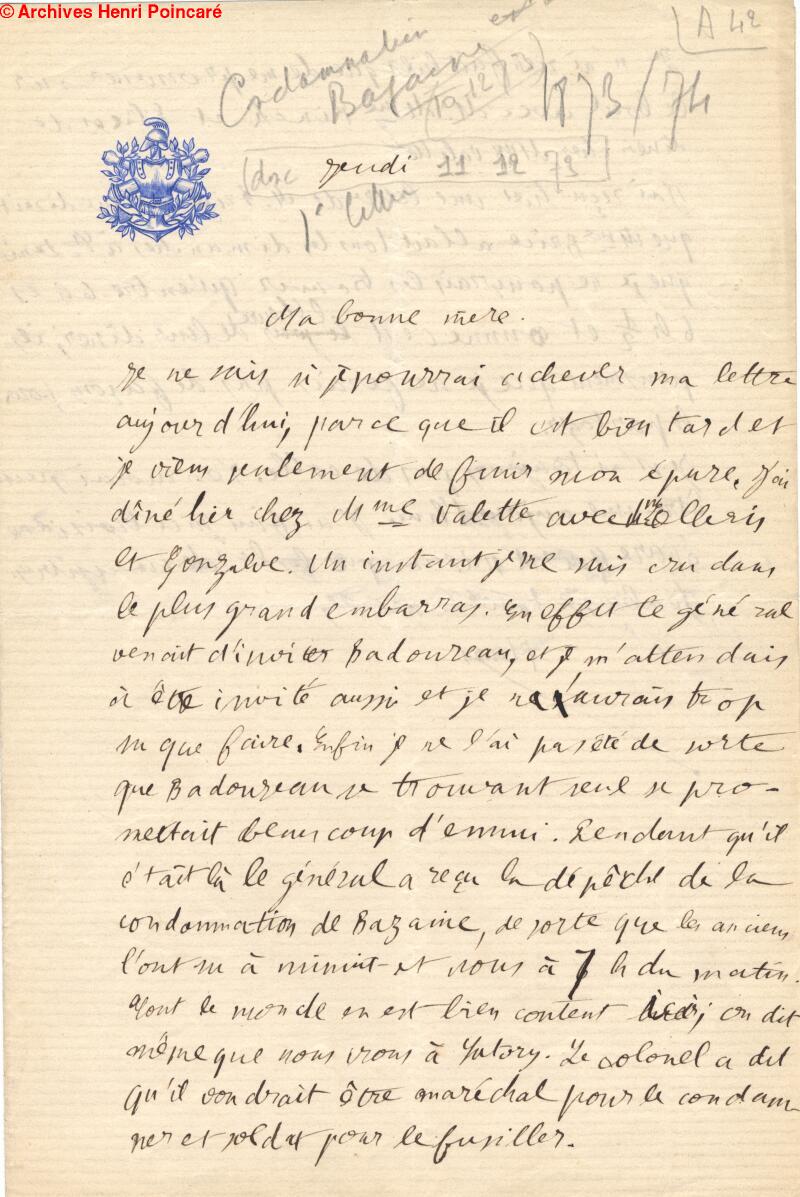 © Archives Henri Poincaré
A 42
Condamnation
Bazaine
1873/74
(donc jeudi 11 12 73)
Ma bonne mère.
Je ne sais si je pourrai achever ma lettre
aujourd'hui, parce que il est bien tard et
je viens seulement de finir mon épure. J'ai
dîné hier chez Mme Valette avec Mme Olleris
et Gonzalve. Un instant je me suis cru dans
le plus grand embarras. En effet le général
venait d'inviter Badoureau, et je m'attendais
à être invité aussi et je ne saurais trop
su que faire. Enfin je ne l'ai pas été de sorte
que Badoureau se trouvant seul se pro-
mettait beaucoup d'ennui. Pendant qu'il
était là le général a reçu la dépêche de la
condamnation de Bazaine, de sorte que les anciens
l'ont su à minuit et nous à 7 h du matin.
Tout le monde en est bien content ici; on dit
même que nous irons à Satory. Le colonel a dit
qu'il voudrait être maréchal pour le condam-
ner et soldat pour le fusiller.